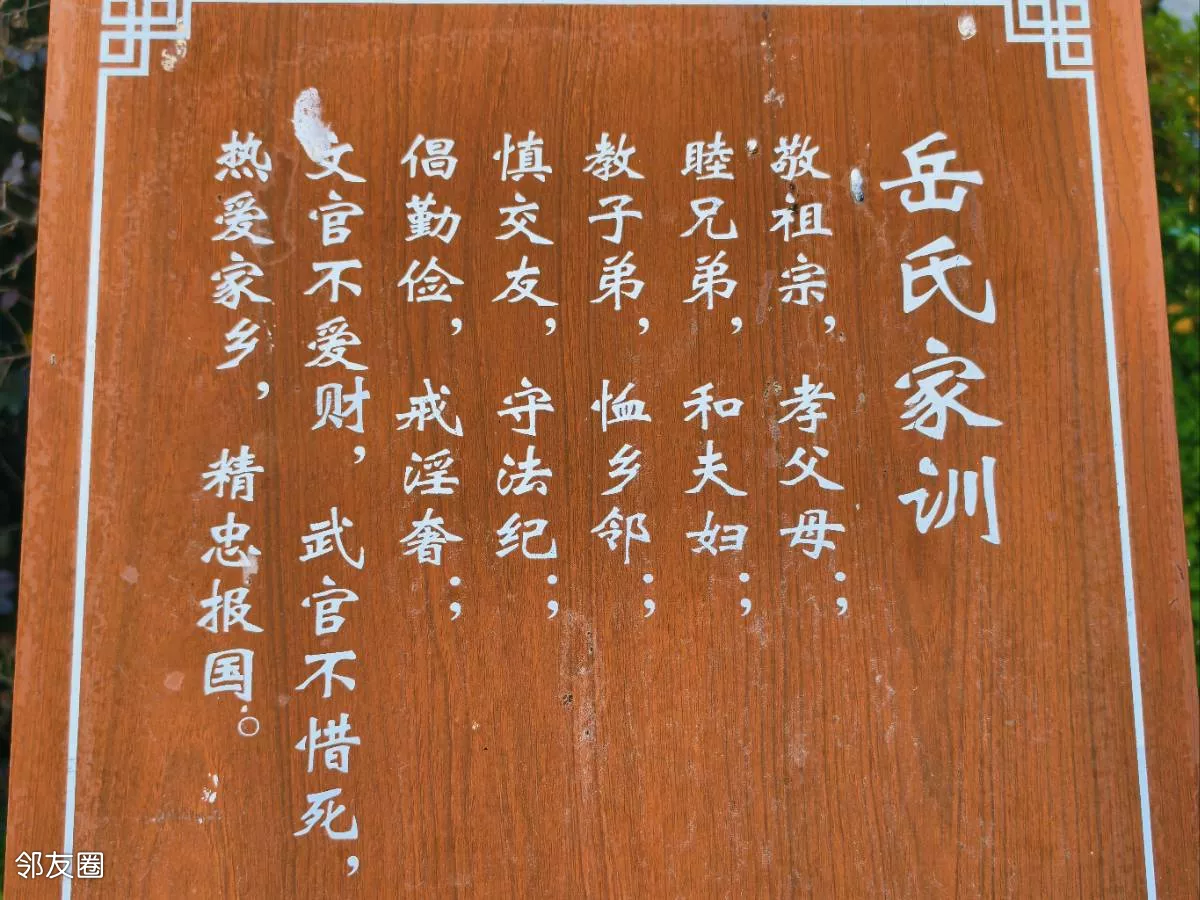 岳氏家训
敬祖宗，孝父母；
睦兄弟，和夫妇；
教子弟，恤乡邻；
慎交友，守法纪；
倡勤俭，戒淫奢；
文官不爱财，武官不惜死，
热爱家乡，精忠报国。
邻友圈